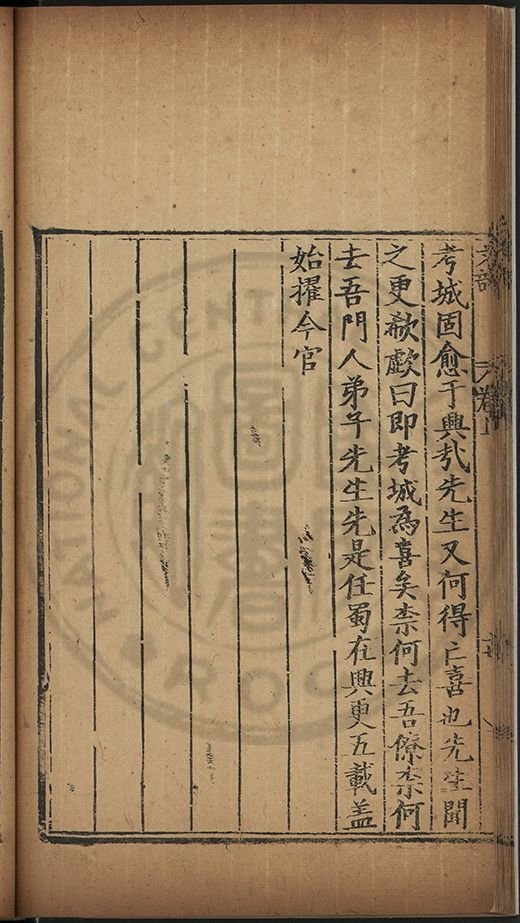 考城固愈于興哉先生又何得亡喜也先生聞
之更欷歔曰即考城為喜矣柰何去吾僚柰何
去吾門人弟子先生先是任蜀在興更五載盖
始擢今官